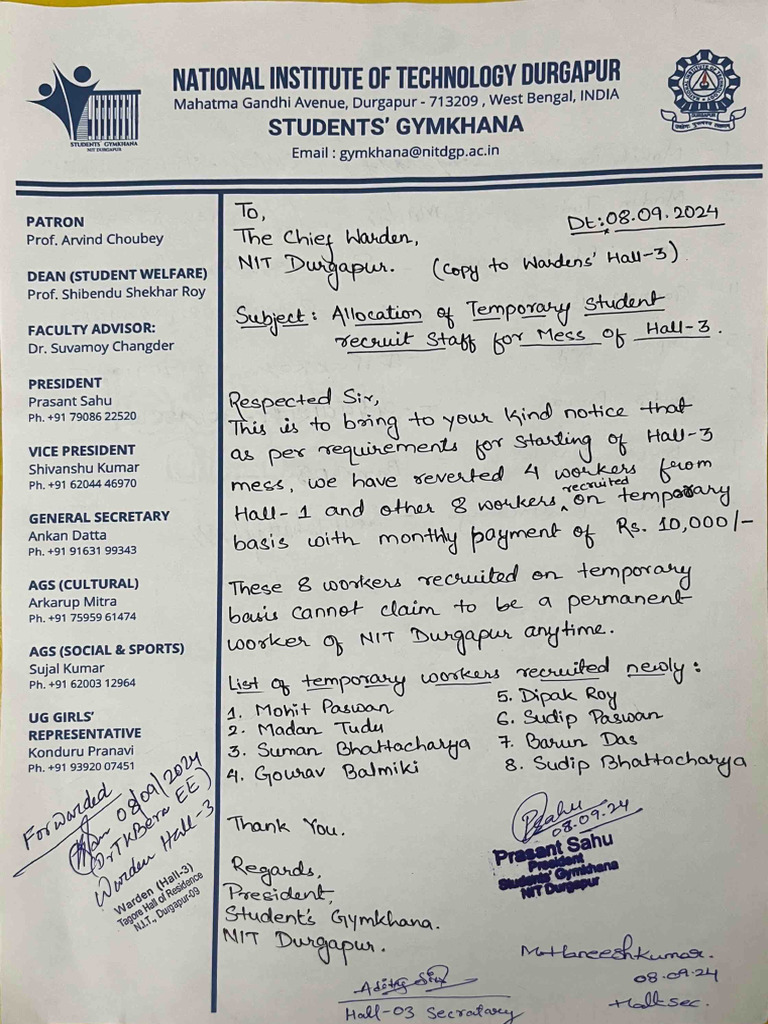 STUDENTS' GYMKHANA
NIT DURGAPUR
NATIONAL INSTITUTE OF TECHNOLOGY DURGAPUR
Mahatma Gandhi Avenue, Durgapur - 713209 , West Bengal, INDIA
STUDENTS' GYMKHANA
Email : gymkhana@nitdgp.ac.in
DURGAPUR
PATRON
Prof. Arvind Choubey
DEAN (STUDENT WELFARE)
Prof. Shibendu Shekhar Roy
FACULTY ADVISOR:
Dr. Suvamoy Changder
PRESIDENT
Prasant Sahu
Ph. +91 79086 22520
VICE PRESIDENT
Shivanshu Kumar
Ph. +91 62044 46970
GENERAL SECRETARY
Ankan Datta
Ph. +91 91631 99343
AGS (CULTURAL)
Arkarup Mitra
Ph. +91 75959 61474
AGS (SOCIAL & SPORTS)
Sujal Kumar
Ph. +91 62003 12964
UG GIRLS'
REPRESENTATIVE
Konduru Pranavi
Ph. +91 93920 07451
Forwarded
08/09/2024
(Dr TK Bera EE)
Warden Hall-3
Warden (Hall-3)
Tagore Hall of Residence
N.I.T., Durgapur-09
To,
Dt:08.09.2024
The Chief Warden,
NIT Durgapur. (Copy to Wardens' Hall-3)
Subject: Allocation of Temporary Student
recruit Staff for Mess of Hall-3.
Respected Sir,
This is to bring to your kind notice that
as per requirements for starting of Hall-3
mess, we have reverted 4 workers from
Hall-1 and other 8 workers recruited on temporary
basis with monthly payment of Rs. 10,000/-
These 8 workers recruited on temporary
basis cannot claim to be a permanent
worker of NIT Durgapur anytime.
List of temporary workers recruited newly:
1. Mohit Paswan
2. Madan Tudu
3. Suman Bhattacharya
4. Gourav Balmiki
5. Dipak Roy
6. Sudip Paswan
7. Barun Das
8. Sudip Bhattacharya
Thank You.
PSahu
08.09.24
Prasant Sahu
President
Students' Gymkhana
NIT Durgapur
Regards,
President,
Student's Gymkhana.
NIT Durgapur.
Hall-03 Secratary
08.09.24
Hall sec.